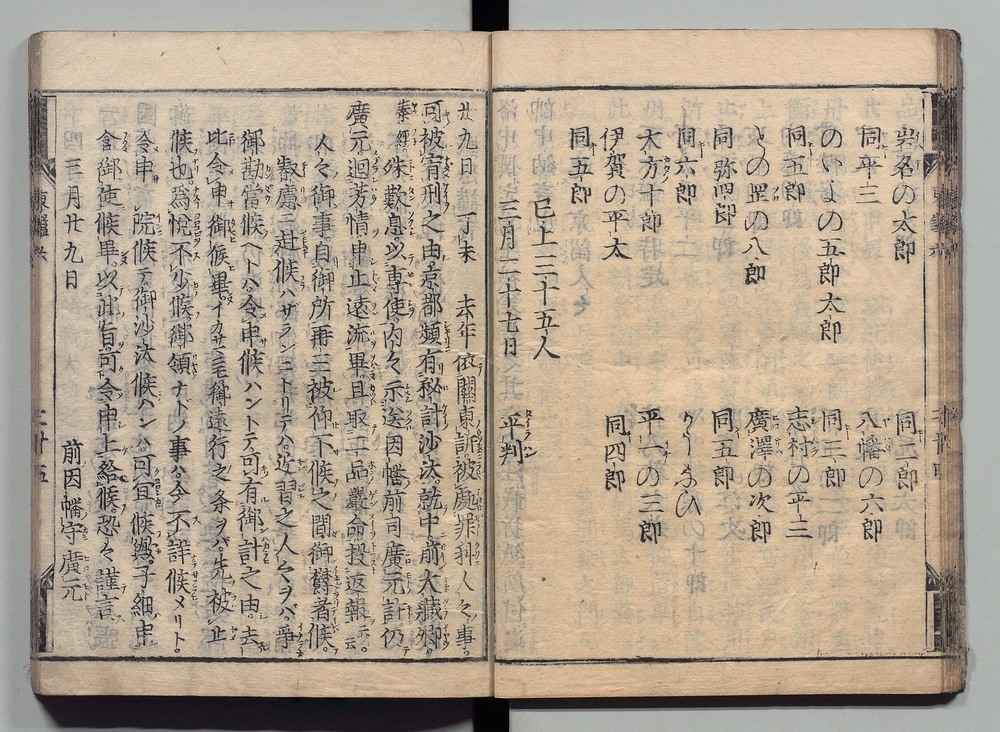 岩名の太郎　同二郎
同平三　八幡の六郎
のいよの五郎太郎　同三郎
同五郎　志村の平三
その置の八郎　廣澤の次郎
同弥四郎　同五郎
同六郎
大方十郎　平六の三郎
伊賀の平太　同四郎
同五郎
已上三十五人
三月二十七日　平判
廿九日　丁未　去年依關東訴被處罪科人々事。
可被宥刑之由京都頻有秘計沙汰。就中前大藏卿
泰經殊歎息以專使内々示送因幡前司廣元許仍
廣元廻芳情申止遠流畢且取二品嚴命投返報云云。
人々御事自御所再三被仰下候之間御鬱者候。
奉慮ニ赴候ハサランニトリテハ近習之人々ヲバ爭
御勘當候ヘトハ令申候ハントテ可有御計之由。去
比令申御候畢イカサニモ御遠行之条ヲバ先被止
候也。爲悦不少候御領ナトノ事ハ今不詳候メリト。
令申院候テ御沙汰候ハンハ可宜候歟子細申
含御使候畢。以此旨可令申上給候。恐々謹言。
三月廿九日　前因幡守廣元
東鑑六
二十五